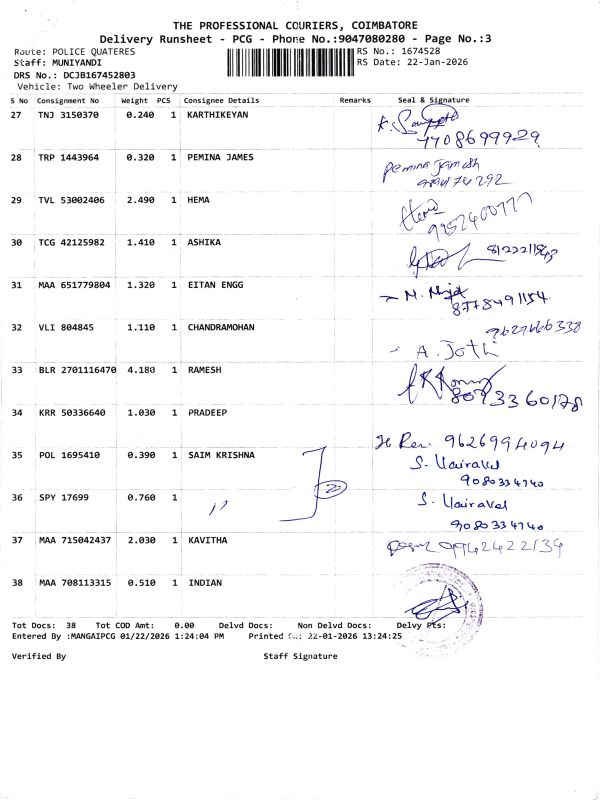 THE PROFESSIONAL COURIERS, COIMBATORE
Delivery Runsheet - PCG - Phone No.:9047080280 - Page No.:3
Route: POLICE QUATERES RS No.: 1674528
Staff: MUNIYANDI RS Date: 22-Jan-2026
DRS No.: DCJB167452803
Vehicle: Two Wheeler Delivery
S No Consignment No Weight PCS Consignee Details Remarks Seal & Signature
27 TNJ 3150370 0.240 1 KARTHIKEYAN
7708699929
28 TRP 1443964 0.320 1 PEMINA JAMES Pemina James
29 TVL 53002406 2.490 1 HEMA Hema
30 TCG 42125982 1.410 1 ASHIKA
31 MAA 651779804 1.320 1 EITAN ENGG
8778491154
32 VLI 804845 1.110 1 CHANDRAMOHAN
A. Jothi
33 BLR 2701116470 4.180 1 RAMESH
34 KRR 50336640 1.030 1 PRADEEP
9626994094
35 POL 1695410 0.390 1 SAIM KRISHNA S. Vairavel
9080334740
36 SPY 17699 0.760 1 ,, 2 S. Vairavel
9080334740
37 MAA 715042437 2.030 1 KAVITHA 9942422134
38 MAA 708113315 0.510 1 INDIAN
Tot Docs: 38 Tot COD Amt: 0.00 Delvd Docs: Non Delvd Docs: Delvy Pts:
Entered By :MANGAIPCG 01/22/2026 1:24:04 PM Printed On: 22-01-2026 13:24:25
Verified By Staff Signature